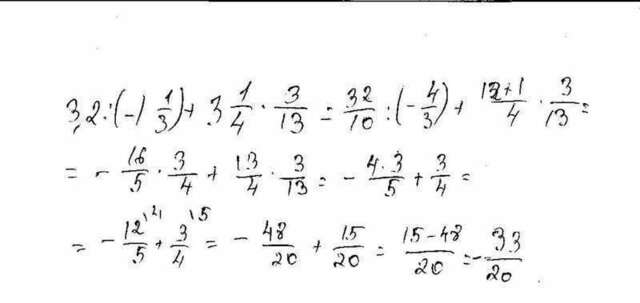 3,2:(-1 1/3)+3 1/4·3/13=32/10:(-4/3)+12+1/4·3/13=
=-16/5·3/4+13/4·3/13=-4·3/5+3/4=
=-12\4/5+3\5/4=-48/20+15/20=15-48/20=-33/20